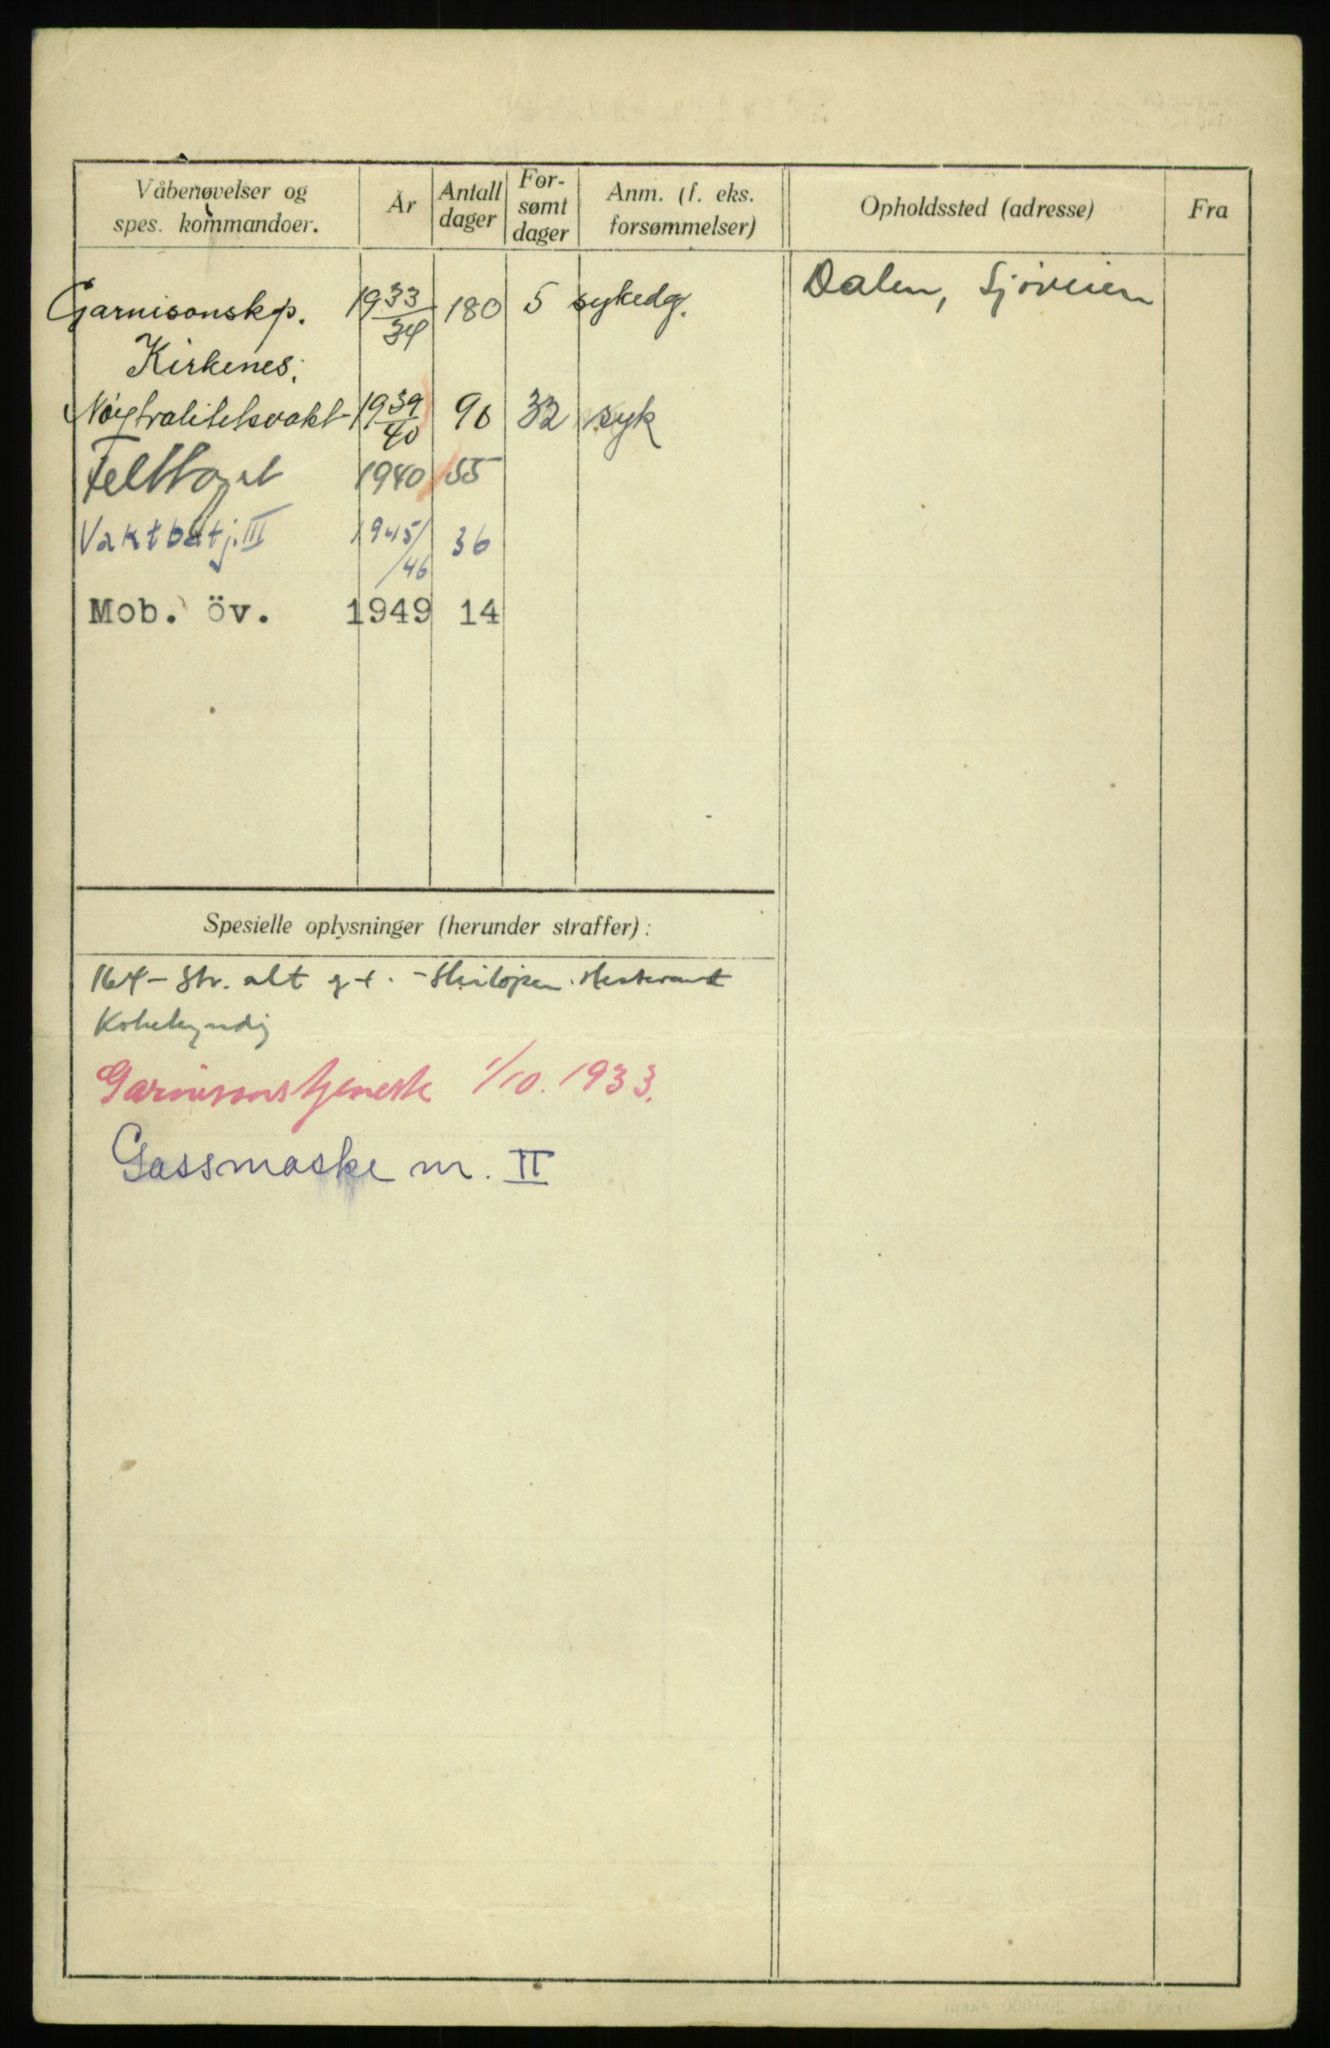 Våbenøvelser og spes. kommandoer. | År | Antall dager | For- sømt dager | Anm. (f. eks. forsømmelser) | Opholdssted (adresse) | Fra
Garnisonskp. 1933/34 180 5 sykedg. Dalen, Sjøveien
Kirkenes.
Nøytralitetsvakt 1939/40 90 32 syk
Felttoget 1940 55
Vaktbatj. III 1945/46 36
Mob. öv. 1949 14
Spesielle oplysninger (herunder straffer):
164 - Str. alt g.t. - Skiløper.
Kokekyndig
Garnisonstjeneste 1/10. 1933.
Gassmaske nr. II